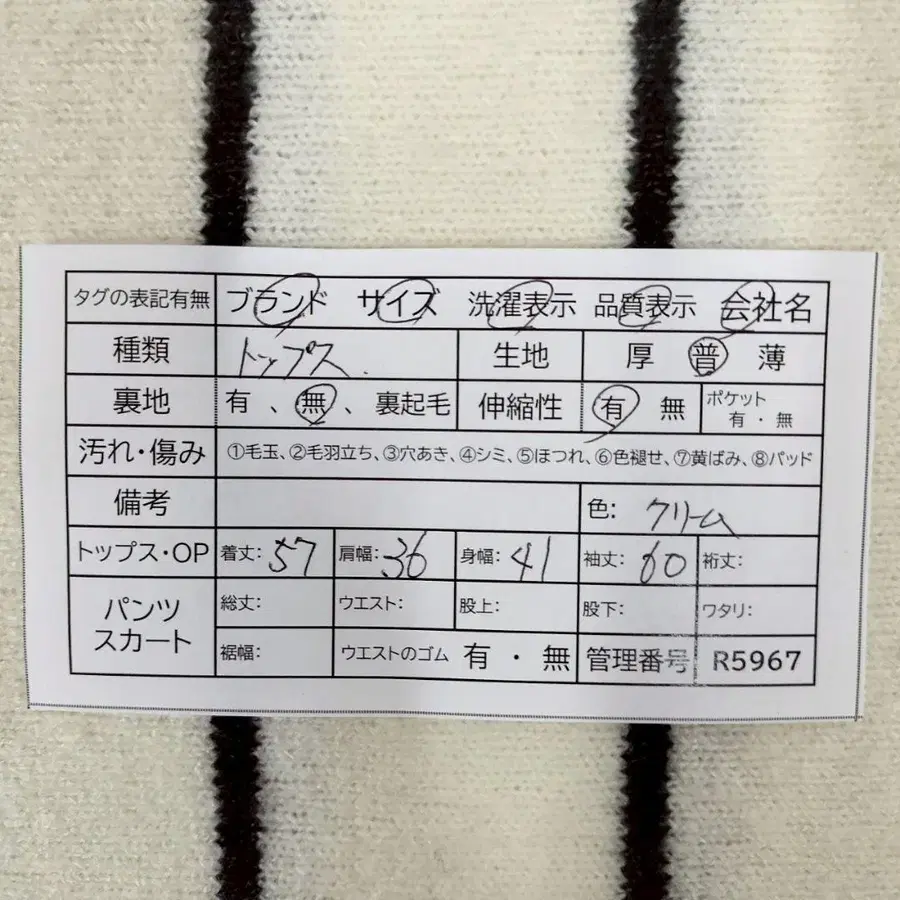 タグの表記有無 ブランド サイズ 洗濯表示 品質表示 会社名
種類 トップス. 生地 厚 普 薄
裏地 有 、 無 、 裏起毛 伸縮性 有 無 ポケット 有 ・ 無
汚れ・傷み ①毛玉、②毛羽立ち、③穴あき、④シミ、⑤ほつれ、⑥色褪せ、⑦黄ばみ、⑧パッド
備考 色: クリーム
トップス・OP 着丈: 57 肩幅: 36 身幅: 41 袖丈: 60 裄丈:
パンツ スカート 総丈: ウエスト: 股上: 股下: ワタリ:
裾幅: ウエストのゴム 有 ・ 無 管理番号 R5967